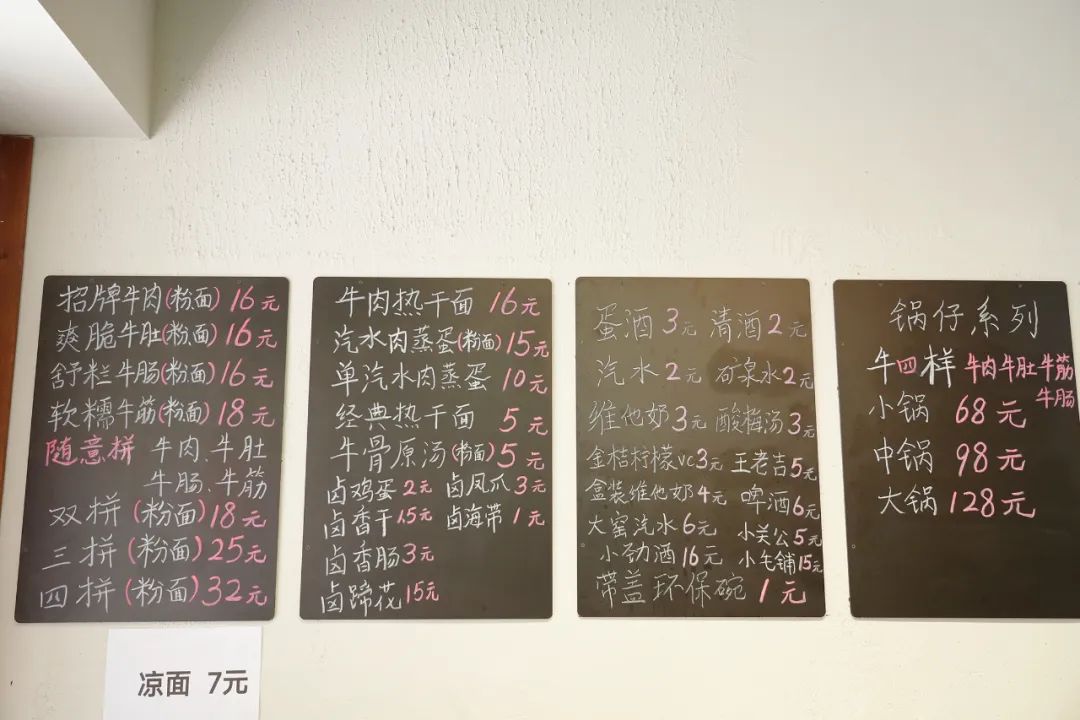 招牌牛肉(粉面)16元
爽脆牛肚(粉面)16元
舒粒牛肠(粉面)16元
软糯牛筋(粉面)18元
随意拼 牛肉、牛肚
牛肠、牛筋
双拼(粉面)18元
三拼(粉面)25元
四拼(粉面)32元
凉面 7元
牛肉热干面 16元
汽水肉蒸蛋(粉面)15元
单汽水肉蒸蛋 10元
经典热干面 5元
牛骨原汤(粉面)5元
卤鸡蛋2元 卤凤爪3元
卤香干1.5元 卤海带1元
卤香肠3元
卤蹄花15元
蛋酒3元 清酒2元
汽水2元 矿泉水2元
维他奶3元 酸梅汤3元
金桔柠檬vc3元 王老吉5元
盒装维他奶4元 啤酒6元
大窑汽水6元 小关公5元
小劲酒16元 小毛铺15元
带盖环保碗 1元
锅仔系列
牛四样 牛肉牛肚牛筋
牛肠
小锅 68元
中锅 98元
大锅 128元